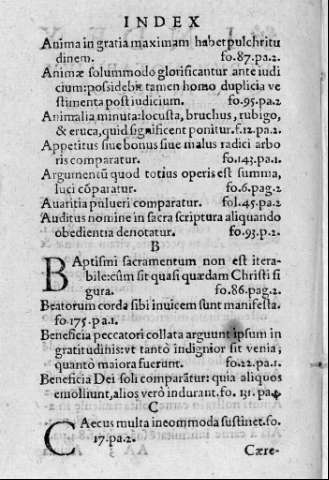 INDEX
Anima in gratia maximam habet pulchritu
dinem. fo.87.pa.2.
Animæ solummodo glorificantur ante iudi
cium: possidebũt tamen homo duplicia ve
stimenta post iudicium. fo.95.pa.2
Animalia minuta: locusta, bruchus, rubigo,
& eruca, quid significent ponitur. f.12.pa.2.
Appetitus siue bonus siue malus radici arbo
ris comparatur. fo.143.pa.1.
Argumentũ quod totius operis est summa,
luci cõparatur. fo.6.pag.2
Auaritia pulueri comparatur. fol.45.pa.2
Auditus nomine in sacra scriptura aliquando
obedientia denotatur. fo.95.p.2.
B
BAptismi sacramentum non est itera-
bile: cũm sit quasi quædam Christi fi
gura. fo.86.pag.2.
Beatorum corda sibi inuicem sunt manifesta.
fo.175.pa.1.
Beneficia peccatori collata arguunt ipsum in
gratitudinis: vt tantò indignior sit venia,
quantò maiora fuerunt. fo.22.pa.1.
Beneficia Dei soli comparãtur: quia aliquos
emolliunt, alios verò indurant. fo. 131. pa.
C
CAecus multa incommoda sustinet. fo.
17.pa.2.
Cære-